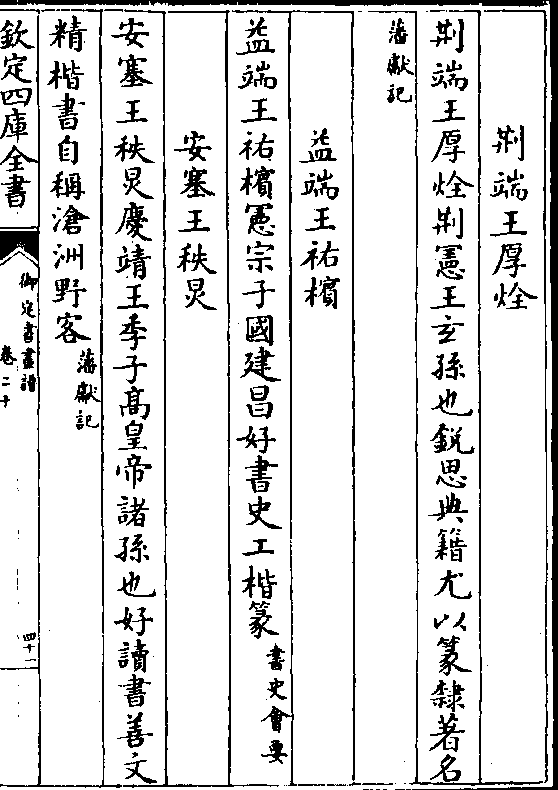 荆端王厚烇
荆端王厚烇荆憲王玄孫也鋭思典籍尤以篆隸著名
藩獻記
益端王祐檳
益端王祐檳憲宗子國建昌好書史工楷篆書史會要
安塞王秩炅
安塞王秩炅慶靖王季子高皇帝諸孫也好讀書善文
精楷書自稱滄洲野客藩獻記
欽定四庫全書
御定書畫譜
卷二十
四十一